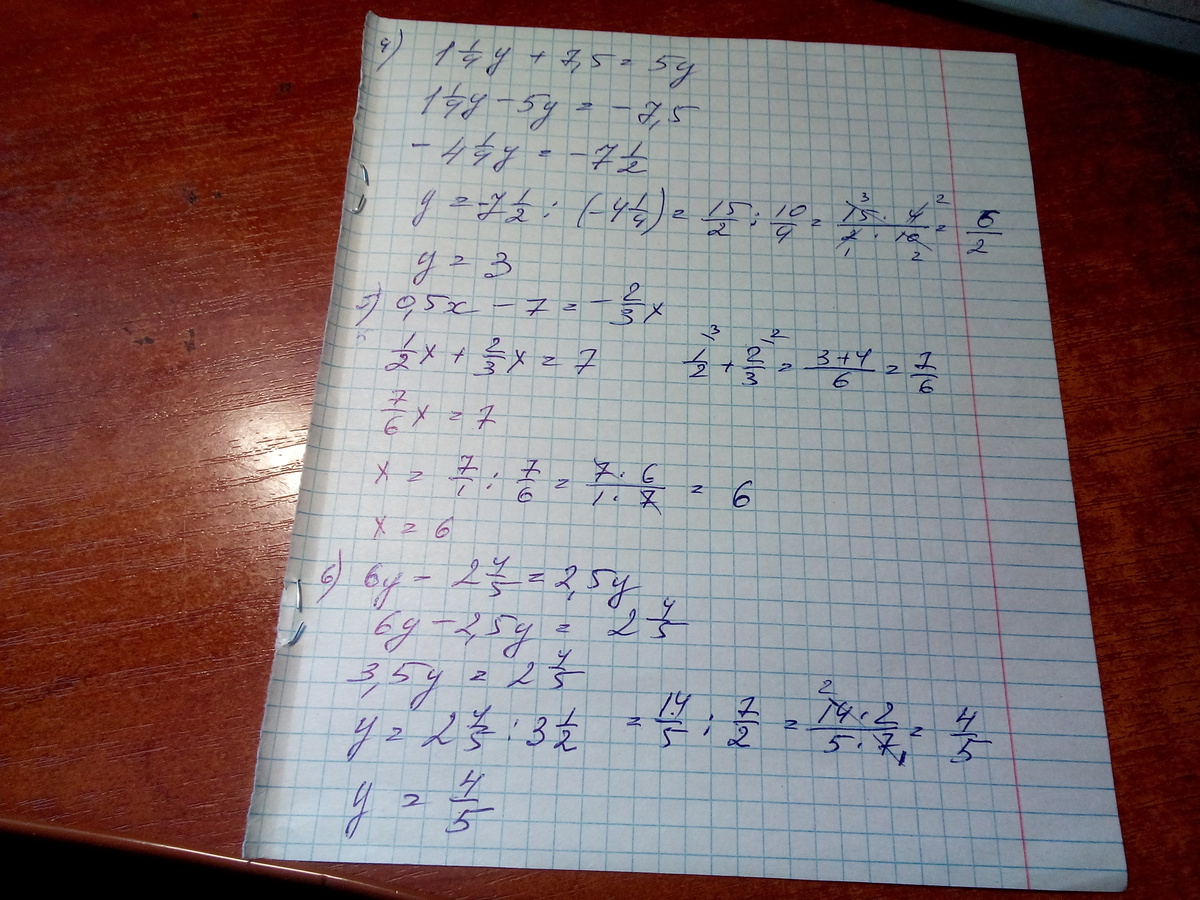 4) 1 1/4 y + 7,5 = 5y
1 1/4 y - 5y = - 7,5
- 4 1/4 y = - 7 1/2
y = -7 1/2 : (-4 1/4) = 15/2 : 10/4 = (15 · 4)/(2 · 10) = 6/2
y = 3
5) 0,5x - 7 = - 2/3 x
1/2 x + 2/3 x = 7 1/2 ·3 + 2/3 ·2 = (3+4)/6 = 7/6
7/6 x = 7
x = 7/1 : 7/6 = (7 · 6)/(1 · 7) = 6
x = 6
6) 6y - 2 4/5 = 2,5y
6y - 2,5y = 2 4/5
3,5y = 2 4/5
y = 2 4/5 : 3 1/2 = 14/5 : 7/2 = (14 · 2)/(5 · 7) = 4/5
y = 4/5